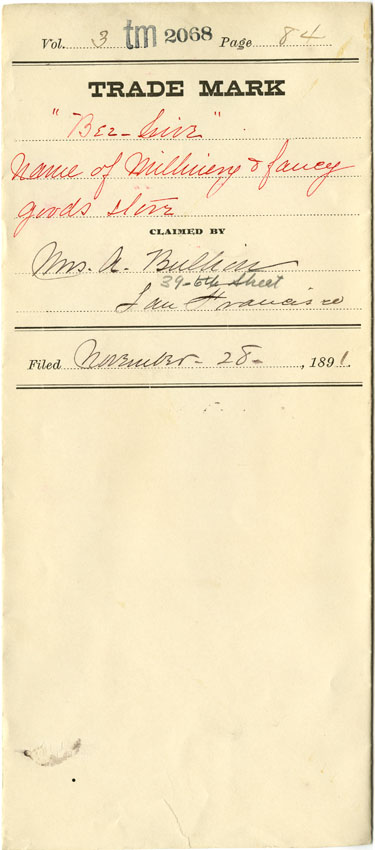 Vol. 3 tm 2068 Page 84
TRADE MARK
"Bee-hive"
Name of Millinery & fancy
goods store
CLAIMED BY
Mrs. A.
39-6th Street
San Francisco
Filed November 28 , 1891.